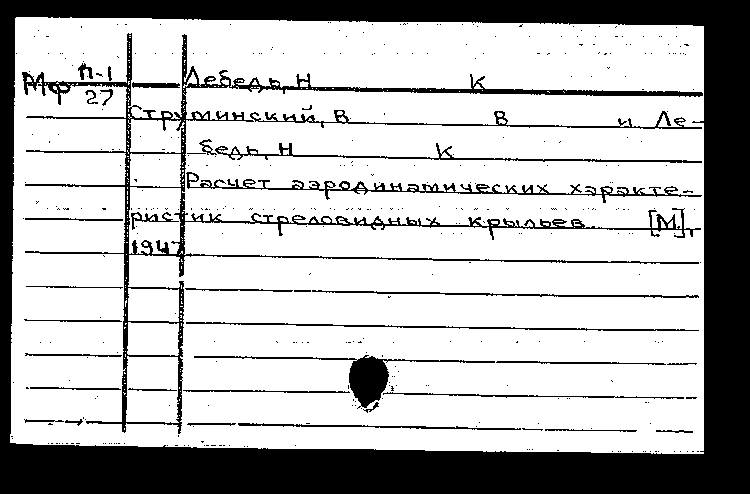 Мф П-1/27 Лебедь, Н К
Струминский, В В и Ле-
бедь, Н К
Расчет аэродинамических характе-
ристик стреловидных крыльев. [М],
1947